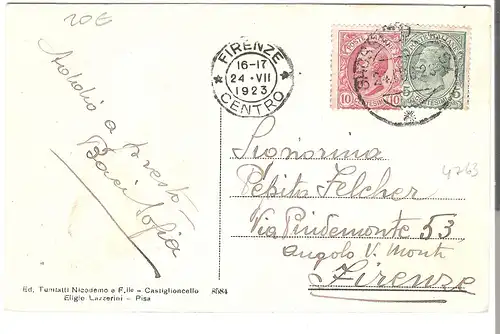 20€
FIRENZE
16-17
24·VII
1923
CENTRO
10
10
5
5
a presto
Baci Sofia
4743
Signorina
Pepita Felcher
Via Pindemonte 53
angolo V. Monti
Firenze
Ed. Tomtatti Nicodemo e F.lle - Castiglioncello 8584
Eligio Lazzerini - Pisa